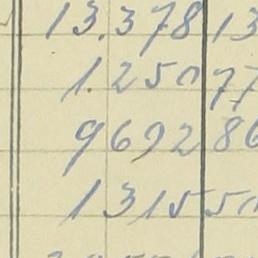 13.378 13
1.250 77
9692 86
1315 50